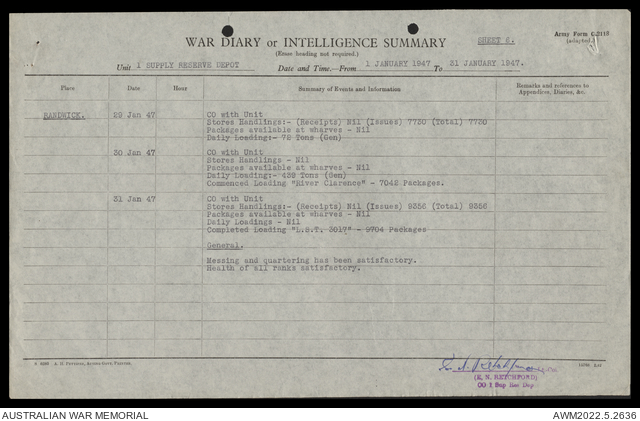 WAR DIARY or INTELLIGENCE SUMMARY
(Erase heading not required.)
SHEET 6.
Army Form C.2118
(adapted).
Unit 1 SUPPLY RESERVE DEPOT Date and Time.—From 1 JANUARY 1947 To 31 JANUARY 1947.
Place Date Hour Summary of Events and Information Remarks and references to
Appendices, Diaries, &c.
RANDWICK. 29 Jan 47 CO with Unit
Stores Handlings:- (Receipts) Nil (Issues) 7730 (Total) 7730
Packages available at wharves - Nil
Daily Loading:- 72 Tons (Gen)
30 Jan 47 CO with Unit
Stores Handlings - Nil
Packages available at wharves - Nil
Daily Loading:- 439 Tons (Gen)
Commenced Loading "River Clarence" - 7042 Packages.
31 Jan 47 CO with Unit
Stores Handlings:- (Receipts) Nil (Issues) 9356 (Total) 9356
Packages available at wharves - Nil
Daily Loadings - Nil
Completed Loading "L.S.T. 3017" - 9704 Packages
General.
Messing and quartering has been satisfactory.
Health of all ranks satisfactory.
(E. N. RETCHFORD)
CO 1 Sup Res Dep
AUSTRALIAN WAR MEMORIAL AWM2022.5.2636